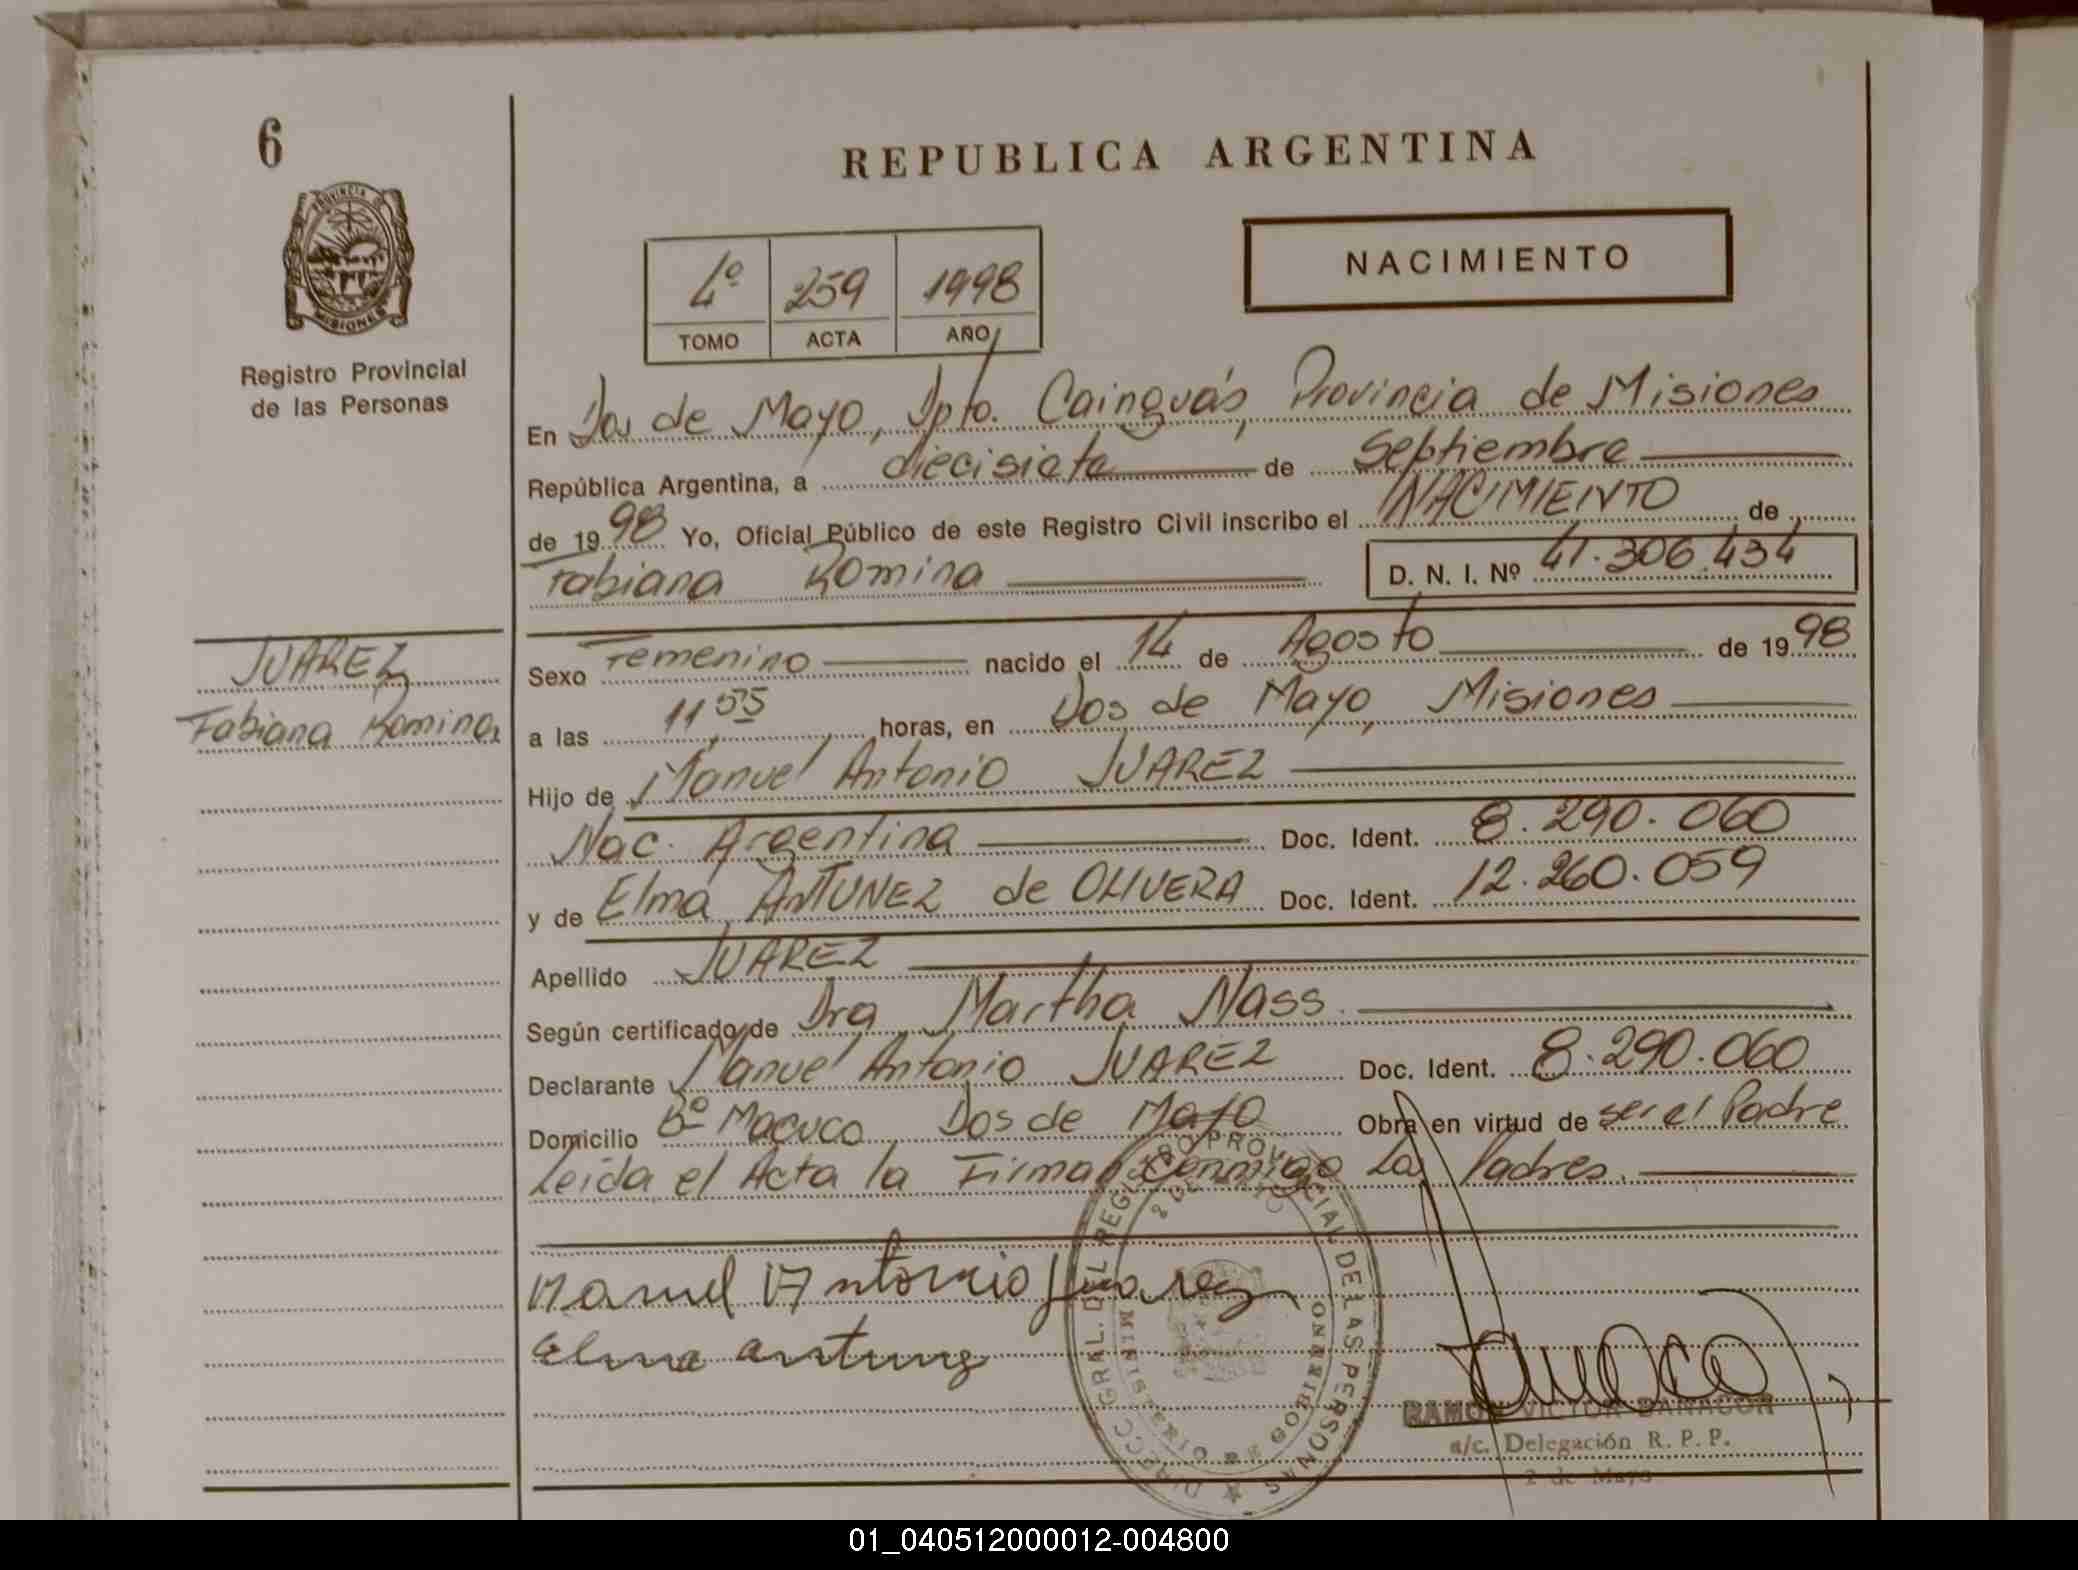 6
PROVINCIA DE
MISIONES
Registro Provincial
de las Personas
REPUBLICA ARGENTINA
NACIMIENTO
4º 259 1998
TOMO ACTA AÑO
En Dos de Mayo, Dpto. Cainguás, Provincia de Misiones
República Argentina, a diecisiete de Septiembre
de 1998 Yo, Oficial Público de este Registro Civil inscribo el NACIMIENTO de
Fabiana Romina D. N. I. Nº 41.306.434
JUAREZ
Fabiana Romina
Sexo Femenino nacido el 14 de Agosto de 1998
a las 11,55 horas, en Dos de Mayo, Misiones
Hijo de Manuel Antonio JUAREZ
Nac. Argentina Doc. Ident. 8.290.060
y de Elma ANTUNEZ de OLIVERA Doc. Ident. 12.260.059
Apellido JUAREZ
Según certificado de Dra Martha Nass.
Declarante Manuel Antonio JUAREZ Doc. Ident. 8.290.060
Domicilio Bº Macuco, Dos de Mayo Obra en virtud de ser el Padre
Leida el Acta la Firman Conmigo Los Padres.
Manuel Antonio Juarez
Elma antunez
DIRECC. GRAL. DEL REGISTRO PROVINCIAL DE LAS PERSONAS
MINISTERIO DE GOBIERNO
RAMON VICTOR
a/c. Delegación R. P. P.
2 de Mayo
01_040512000012-004800